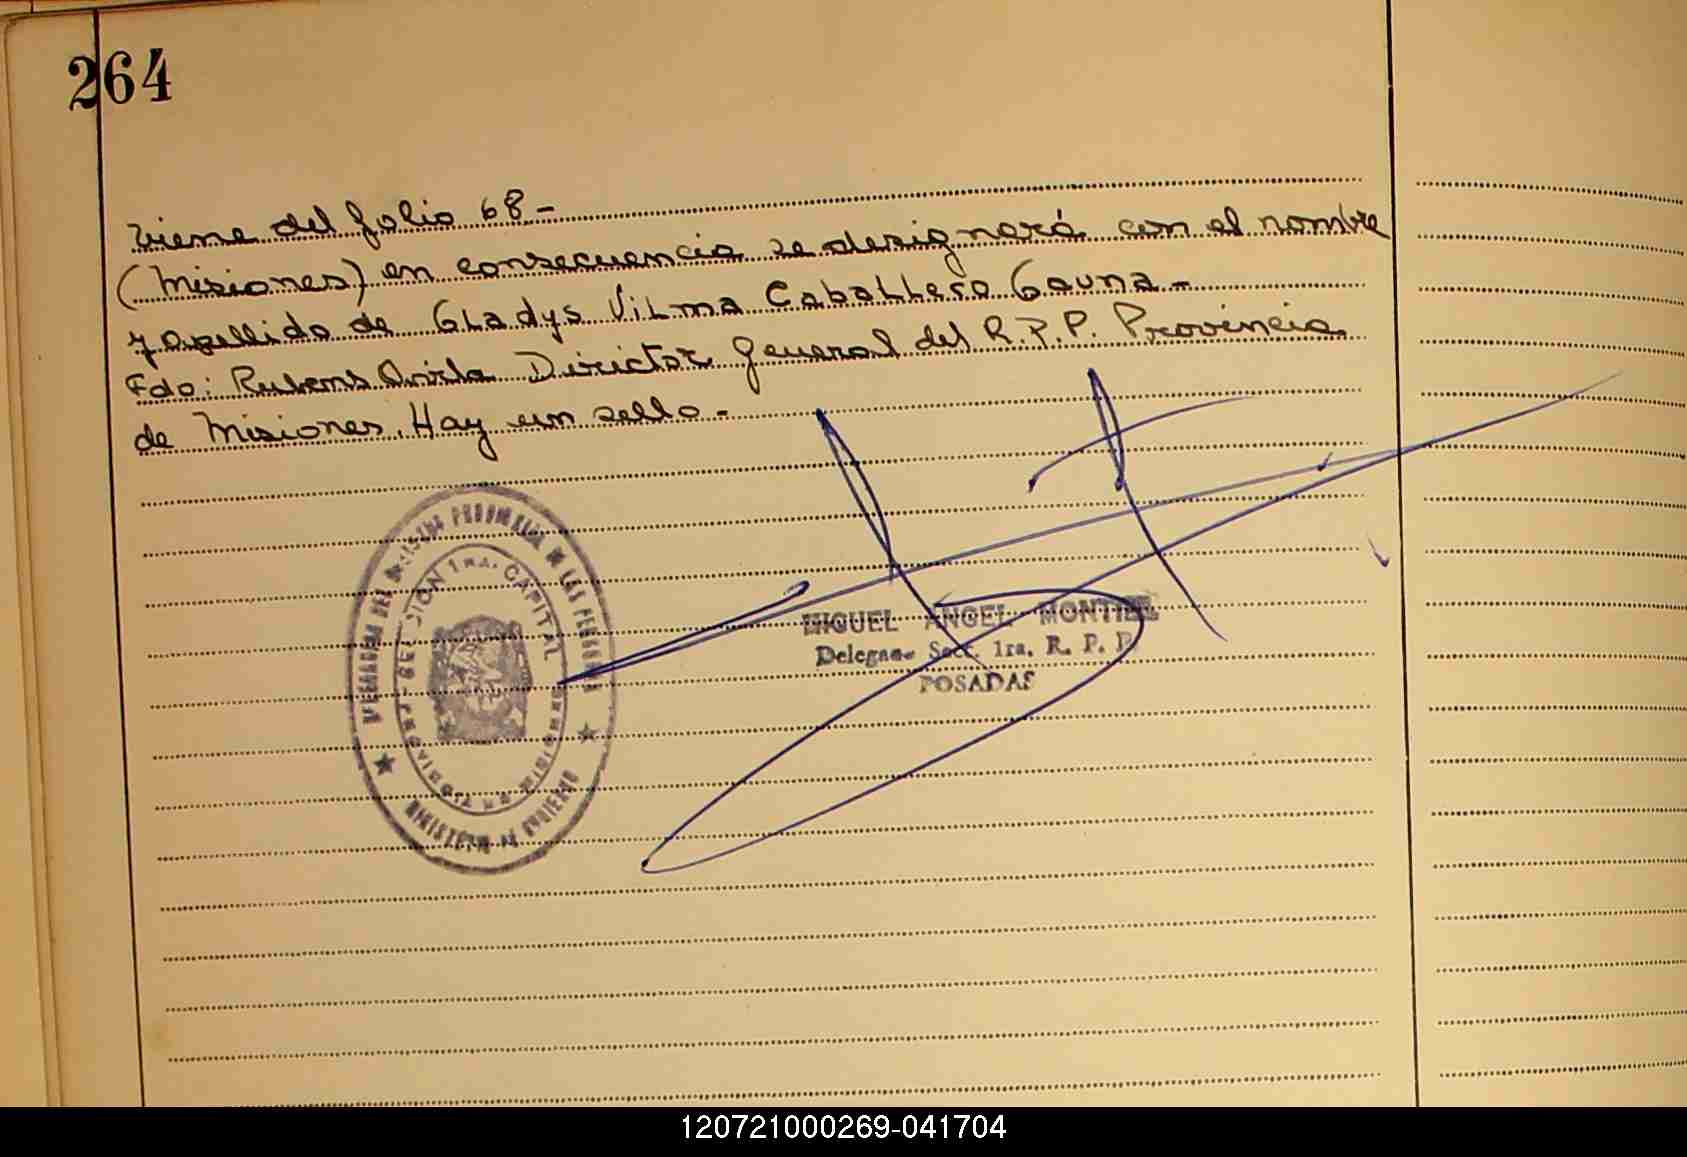 264
viene del folio 68-
(Misiones) en consecuencia se designará con el nombre
y apellido de Gladys Vilma Caballero Gauna-
Fdo: Rubens Avila Director General del R.P.P. Provincia
de Misiones. Hay un sello-
PROVINCIAL DE LAS PERSONAS
1RA. CAPITAL
MINISTERIO DE GOBIERNO
MIGUEL ANGEL MONTIEL
Secc. 1ra. R. P. P.
POSADAS
120721000269-041704